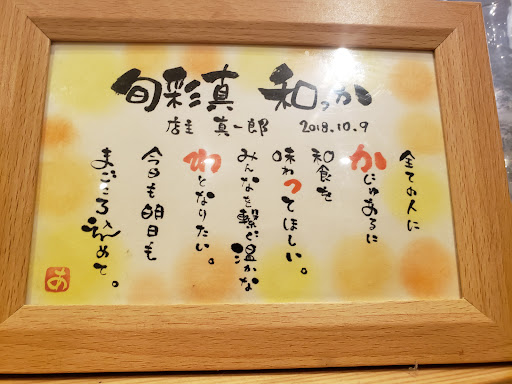 旬彩真 和っか
店主 真一郎 2018.10.9
全ての人に
かじゅあるに
和食を
味わってほしい。
みんなを繋ぐ温かな
わとなりたい。
今日も明日も
まごころ込めて。
あ